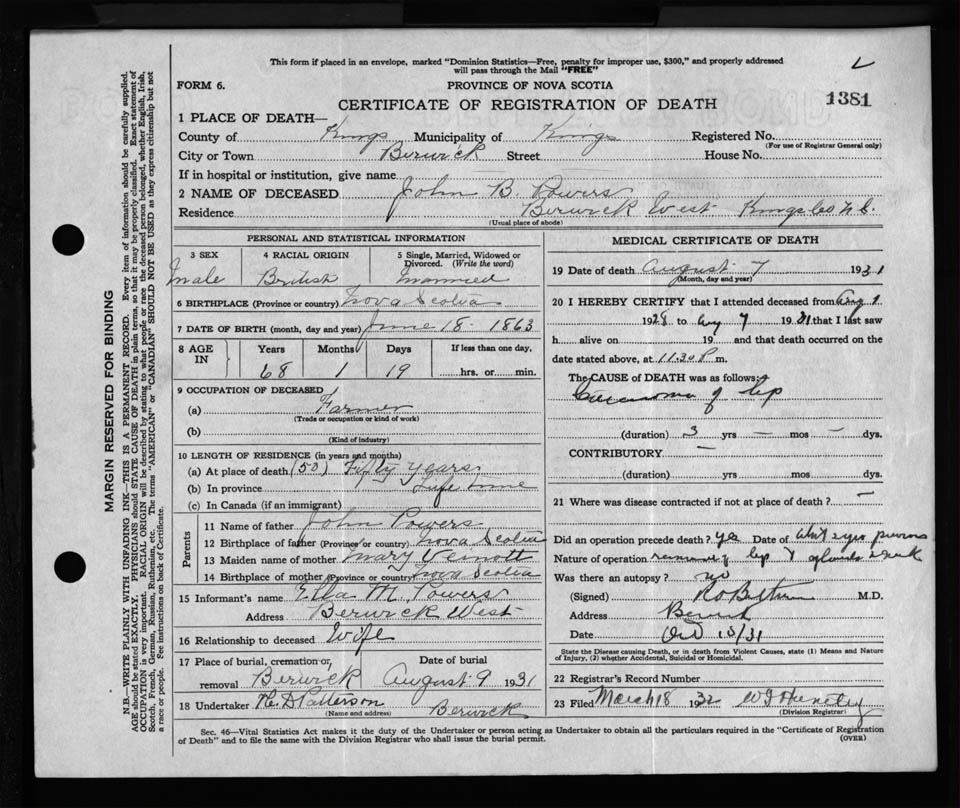 This form if placed in an envelope, marked "Dominion Statistics—Free, penalty for improper use, $300," and properly addressed
will pass through the Mail "FREE"
FORM 6.
PROVINCE OF NOVA SCOTIA
CERTIFICATE OF REGISTRATION OF DEATH
1381
1 PLACE OF DEATH—
County of Kings Municipality of Kings Registered No.
(For use of Registrar General only)
City or Town Berwick Street House No.
If in hospital or institution, give name
2 NAME OF DECEASED John B. Powers
Residence Berwick West Kings Co N.S.
(Usual place of abode)
PERSONAL AND STATISTICAL INFORMATION
3 SEX 4 RACIAL ORIGIN 5 Single, Married, Widowed or
Divorced. (Write the word)
Male British Married
6 BIRTHPLACE (Province or country) Nova Scotia
7 DATE OF BIRTH (month, day and year) June 18 - 1863
8 AGE IN Years Months Days If less than one day,
68 1 19 hrs. or min.
9 OCCUPATION OF DECEASED
(a) Farmer
(Trade or occupation or kind of work)
(b)
(Kind of industry)
10 LENGTH OF RESIDENCE (in years and months)
(a) At place of death (50) Fifty years
(b) In province Life time
(c) In Canada (if an immigrant)
Parents
11 Name of father John Powers
12 Birthplace of father (Province or country) Nova Scotia
13 Maiden name of mother Mary Veinott
14 Birthplace of mother (Province or country) Nova Scotia
15 Informant's name Ella M. Powers
Address Berwick West
16 Relationship to deceased Wife
17 Place of burial, cremation, or Date of burial
removal Berwick August 9 1931
18 Undertaker H. D Patterson Berwick
(Name and address)
MEDICAL CERTIFICATE OF DEATH
19 Date of death August 7 1931
(Month, day and year)
20 I HEREBY CERTIFY that I attended deceased from Aug 1
1928 to Aug 7 1931 that I last saw
h alive on 19 and that death occurred on the
date stated above, at 11.30 P m.
The CAUSE of DEATH was as follows:
Carcinoma of lip
(duration) 3 yrs — mos — dys.
CONTRIBUTORY —
(duration) yrs. mos. dys.
21 Where was disease contracted if not at place of death? —
Did an operation precede death? yes Date of
Nature of operation removal of lip & glands neck
Was there an autopsy? no
(Signed) M.D.
Address Berwick
Date Oct 15/31
State the Disease causing Death, or in death from Violent Causes, state (1) Means and Nature
of Injury, (2) whether Accidental, Suicidal or Homicidal.
22 Registrar's Record Number
23 Filed March 18 1932
(Division Registrar)
Sec. 46—Vital Statistics Act makes it the duty of the Undertaker or person acting as Undertaker to obtain all the particulars required in the "Certificate of Registration
of Death" and to file the same with the Division Registrar who shall issue the burial permit.
(OVER)
MARGIN RESERVED FOR BINDING
N.B.—WRITE PLAINLY WITH UNFADING INK—THIS IS A PERMANENT RECORD. Every item of information should be carefully supplied.
AGE should be stated EXACTLY. PHYSICIANS should STATE CAUSE OF DEATH in plain terms, so that it may be properly classified. Exact statement of
OCCUPATION is very important. RACIAL ORIGIN will be described by stating to what people or race the deceased person belonged, whether English, Irish,
Scotch, French, German, Russian, Ruthenian, etc. The terms "AMERICAN" or "CANADIAN" SHOULD NOT BE USED as they express citizenship but not
a race or people. See instructions on back of Certificate.